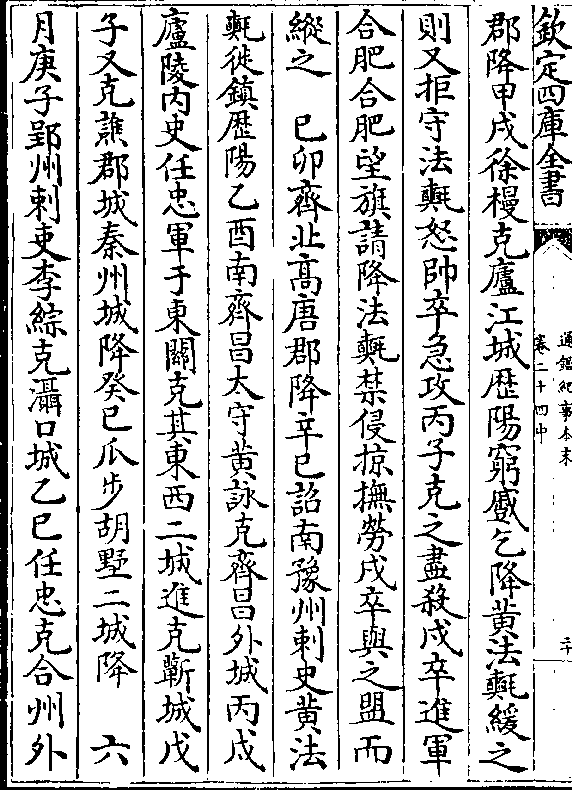 欽定四庫全書
通鑑紀事本末
卷二十四中
二十
郡降甲戌徐槾克廬江城歴陽窮蹙乞降黄法𣰰緩之
則又拒守法𣰰怒帥卒急攻丙子克之盡殺戍卒進軍
合肥合肥望旗請降法𣰰禁侵掠撫勞戍卒與之盟而
縱之　己卯齊北高唐郡降辛巳詔南豫州刺史黄法
𣰰徙鎮歴陽乙酉南齊昌太守黄詠克齊昌外城丙戌
廬陵内史任忠軍于東關克其東西二城進克蘄城戊
子又克譙郡城秦州城降癸巳瓜步胡墅二城降　六
月庚子郢州刺吏李綜克灄口城乙巳任忠克合州外